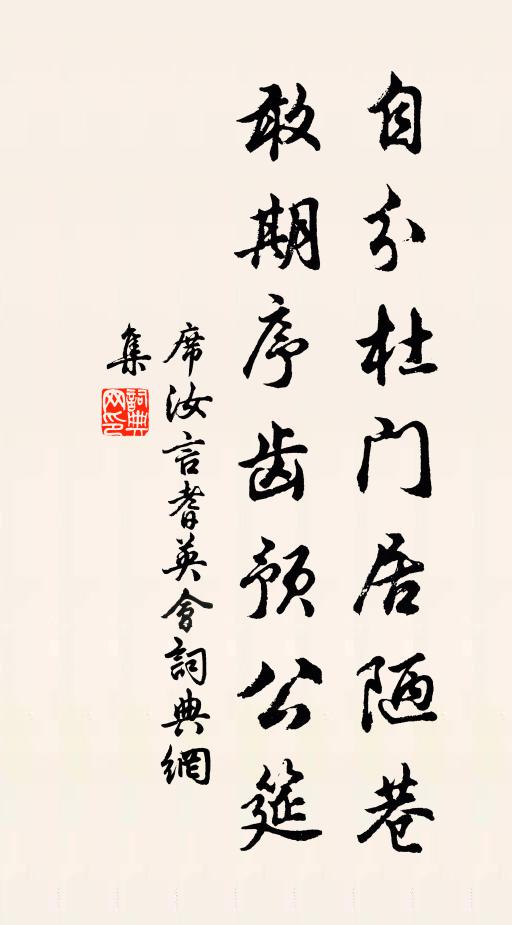 自分杜门居陋巷
敢期序齿预公筵
席汝言耆英會詞典網
集
詞典
网印